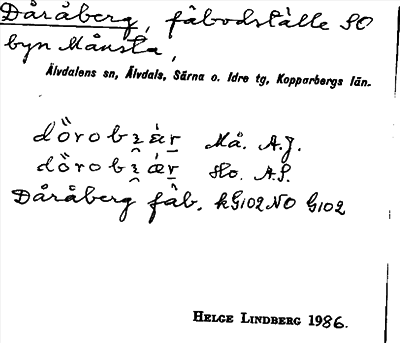 Dåråberg, fäbodställe SO
byn Månsta,
Älvdalens sn, Älvdals, Särna o. Idre tg, Kopparbergs län.
dö̀robz̨ä́r Må. A.J.
dö̀robz̨ǽr Ho. A.S.
Dåråberg fäb. kG102NO G102
HELGE LINDBERG 1986.